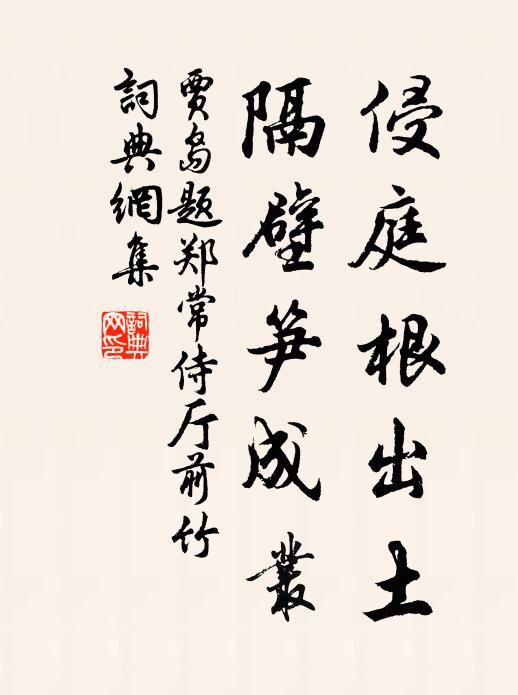 侵庭根出土
隔壁笋成叢
賈島题郑常侍厅前竹
詞典網集
詞典